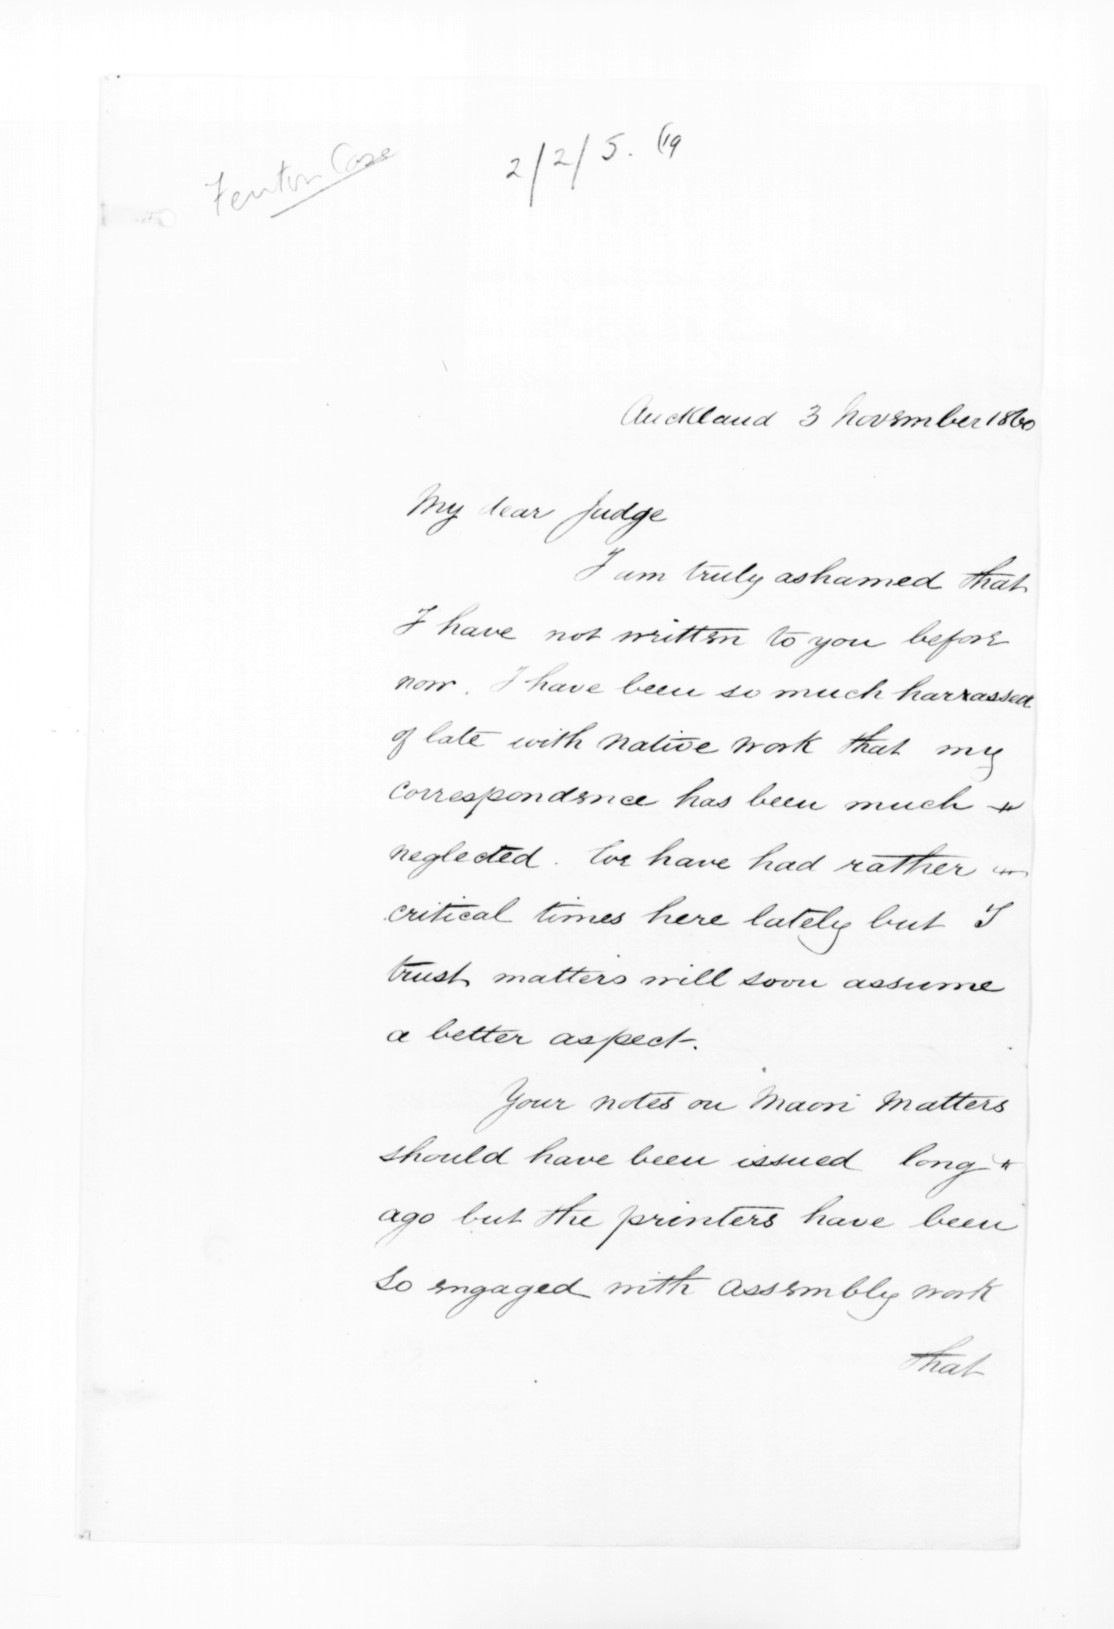 Fenton Case
2/2/5. (19
Auckland 3 November 1860
My dear Judge
I am truly ashamed that
I have not written to you before
now. I have been so much harrassed
of late with native work that my
correspondence has been much
neglected. We have had rather
critical times here lately but I
trust matters will soon assume
a better aspect.
Your notes on Maori Matters
should have been issued long
ago but the printers have been
so engaged with Assembly work
that